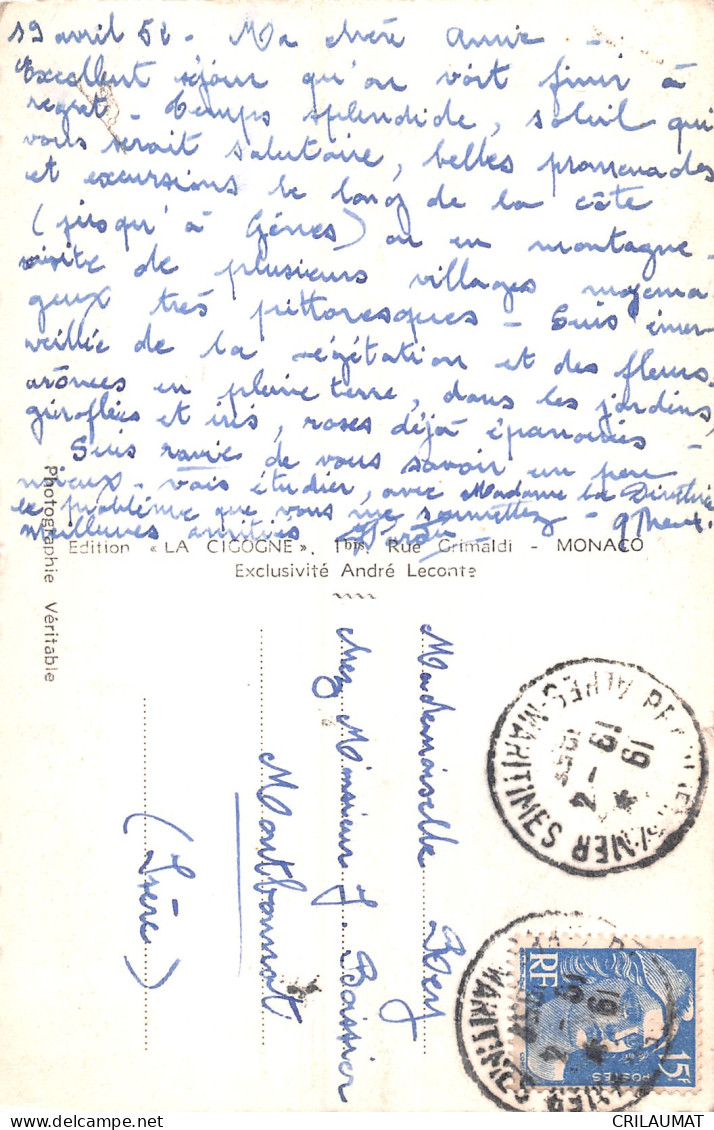 19 avril 52 - Ma chère Annie -
Excellent séjour qu'on voit finir à
regret - temps splendide, soleil qui
vous serait salutaire, belles promenades
et excursions le long de la côte
(jusqu'à Gênes) ou en montagne -
visite de plusieurs villages moyenâ-
geux très pittoresques - Suis émer-
veillée de la végétation et des fleurs.
arômes en pleine terre, dans les jardins,
giroflées et iris, roses déjà épanouies -
Suis ravie de vous savoir un peu
mieux - vais étudier, avec Madame la Directrice
le problème que vous me soumettez -
meilleures amitiés
Edition « LA CIGOGNE », 1bis, Rue Grimaldi - MONACO
Exclusivité André Leconte
Photographie Véritable
Mademoiselle Rey
chez Monsieur J. Boissier
Montbonnot
(Isère)
ALPES-MARITIMES
S/MER
19
MARITIMES
RF
15F
POSTES
CRILAUMAT